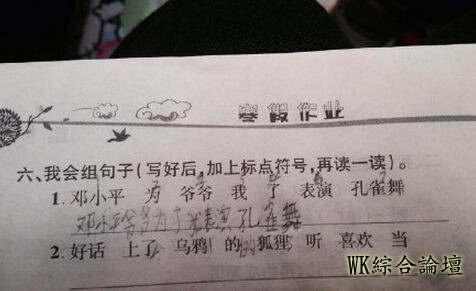 寒假作业
六、我会组句子(写好后,加上标点符号,再读一读)。
1.邓小平 为 爷爷 我 了 表演 孔雀舞
邓小平爷爷为了我表演孔雀舞
2.好话 上了 乌鸦 的 狐狸 听 喜欢 当
WK綜合論壇